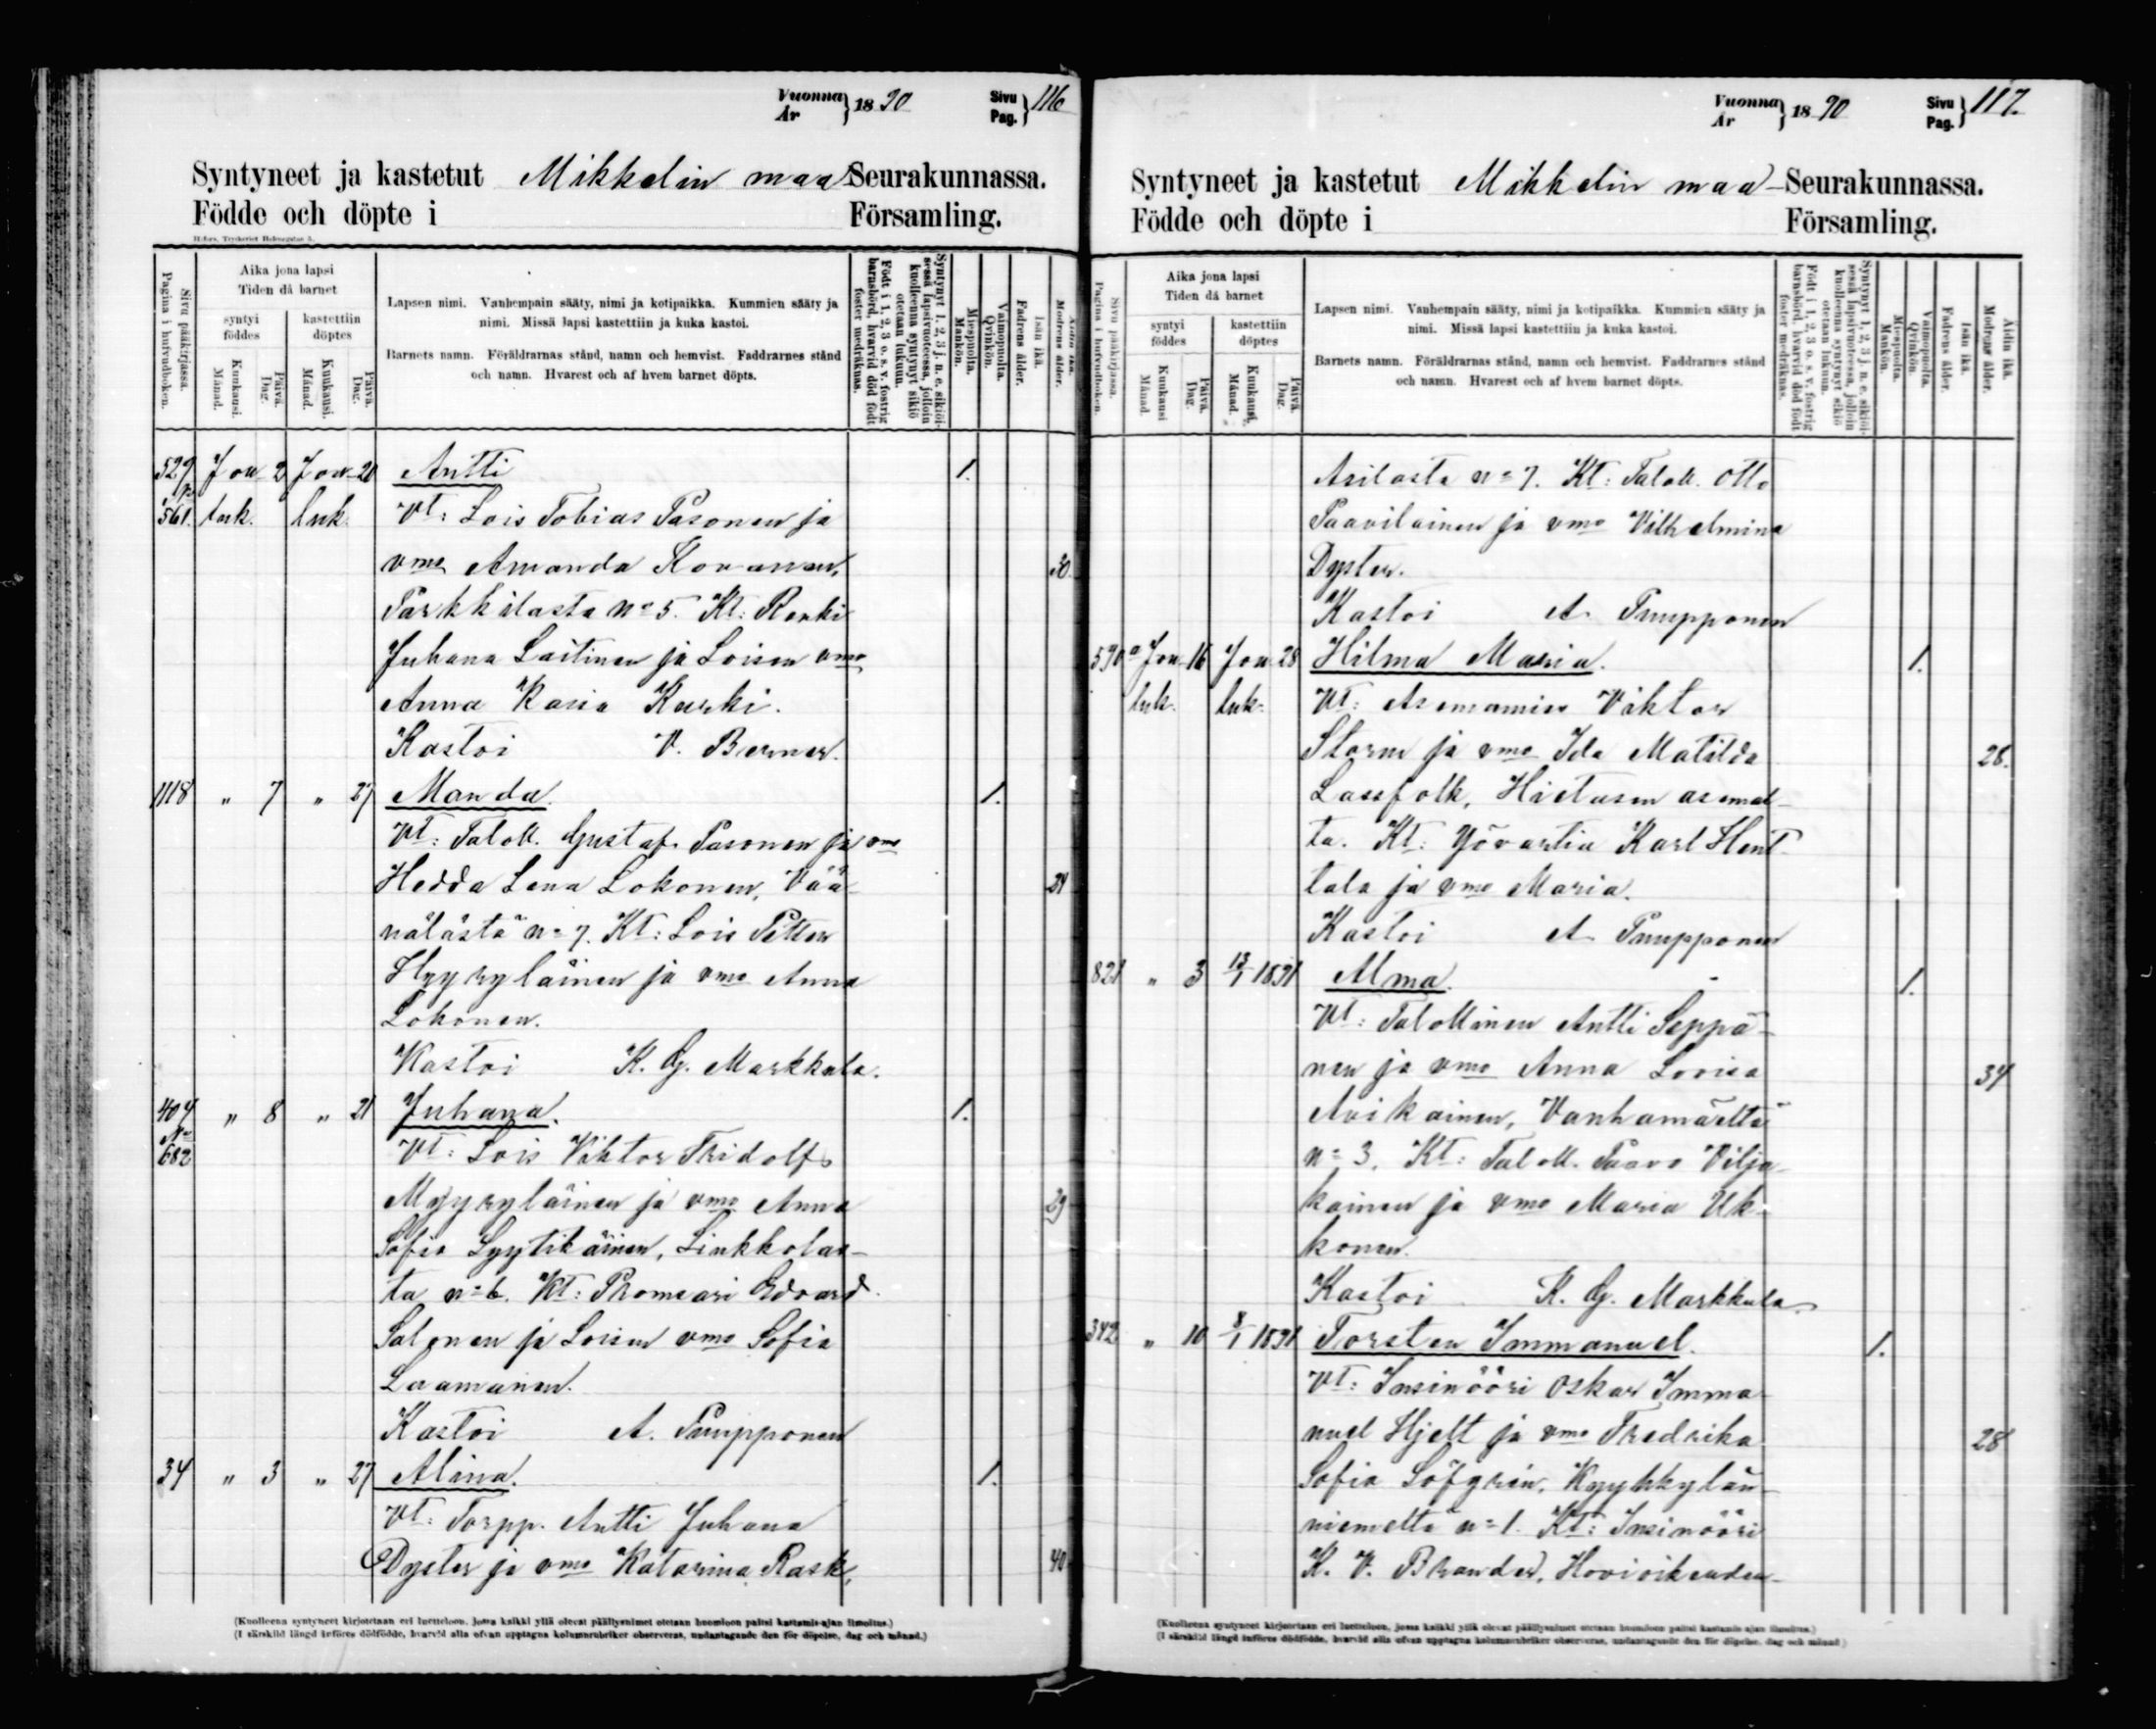 Vuonna / År } 1890 Sivu / Pag. } 116
Syntyneet ja kastetut Mikkelin maa Seurakunnassa.
Födde och döpte i Församling.
Sivu pääkirjassa. Pagina i hufvudboken.
Aika jona lapsi
Tiden då barnet
syntyi kastettiin
föddes döptes
Kuukausi. Månad. Päivä. Dag. Kuukausi. Månad. Päivä. Dag.
Lapsen nimi. Vanhempain sääty, nimi ja kotipaikka. Kummien sääty ja
nimi. Missä lapsi kastettiin ja kuka kastoi.
Barnets namn. Föräldrarnas stånd, namn och hemvist. Faddrarnes stånd
och namn. Hvarest och af hvem barnet döpts.
Syntynyt 1, 2, 3 j. n. e. sikiöi-
sessä lapsivuoteessa, jolloin
kuolleena syntynyt sikiö
otetaan lukuun.
Födt i 1, 2, 3 o. s. v. fostrig
barnsbörd, hvarvid död födt
foster medräknas.
Miespuolta. Mankön.
Vaimopuolta. Qvinkön.
Isän ikä. Fadrens ålder.
Äidin ikä. Modrens ålder.
529 Jou- 2 Jou- 20 Antti 1.
561. luk. luk. Vt: Lois Tobias Pasonen ja
vmo Amanda Kovanen, 30.
Parkkilasta No 5. Kt: Renki
Juhana Laitinen ja Loisen vmo
Anna Kaisa Karki.
Kastoi V. Berner.
1118 " 7 " 27 Manda. 1.
Vt: Taloll. Gustaf Pasonen ja vmo
Hedda Lena Lokonen, Vää-
nälästä no 7. Kt: Lois Petter
Hyyryläinen ja vmo Anna
Lokonen.
Kastoi K. G. Markkula.
404 " 8 " 21 Juhana. 1.
682 Vt: Lois Viktor Fridolf
Myyryläinen ja vmo Anna 29
Sofia Lyytikäinen, Linkkolas-
ta no 6. Kt: Promvari Edvard
Salonen ja Loisen vmo Sofia
Laamanen.
Kastoi A. Pumpponen
34 " 3 " 27 Alina. 1.
Vt: Torpp. Antti Juhana
Dyster ja vmo Katarina Rask, 40
(Kuolleena syntyneet kirjoitetaan eri luetteloon, jossa kaikki yllä olevat päällysnimet otetaan huomioon paitsi kastamis-ajan ilmoitus.)
(I särskild längd införes dödfödde, hvarvid alla ofvan upptagna kolumnrubriker observeras, undantagande den för döpelse, dag och månad.)
Vuonna / År } 1890 Sivu / Pag. } 117.
Syntyneet ja kastetut Mikkelin maa- Seurakunnassa.
Födde och döpte i Församling.
Sivu pääkirjassa. Pagina i hufvudboken.
Aika jona lapsi
Tiden då barnet
syntyi kastettiin
föddes döptes
Kuukausi Månad. Päivä. Dag. Kuukausi, Månad. Päivä. Dag.
Lapsen nimi. Vanhempain sääty, nimi ja kotipaikka. Kummien sääty ja
nimi. Missä lapsi kastettiin ja kuka kastoi.
Barnets namn. Föräldrarnas stånd, namn och hemvist. Faddrarnes stånd
och namn. Hvarest och af hvem barnet döpts.
Syntynyt 1, 2, 3 j. n. e. sikiöi-
sessä lapsivuoteessa, jolloin
kuolleena syntynyt sikiö
otetaan lukuun.
Födt i 1, 2, 3 o. s. v. fostrig
barnsbörd, hvarvid död födt
foster medräknas.
Miespuolta. Mankön.
Vaimopuolta. Qvinkön.
Isän ikä. Fadrens ålder.
Äidin ikä. Modrens ålder.
Asilasta no 7. Kt: Taloll. Otto
Paavilainen ja vmo Vilhelmina
Dyster.
Kastoi A. Pumpponen
590 a Jou- 16 Jou- 28 Hilma Maria. 1.
luk. luk. Vt: Asemamies Viktor
Storm ja vmo Ida Matilda 28.
Lassfolk, Hietasen asemal-
ta. Kt: Yövartia Karl Hent-
tala ja vmo Maria.
Kastoi A. Pumpponen
821 " 3 13/1 1891 Alma. 1.
Vt: Talollinen Antti Seppä-
nen ja vmo Anna Lovisa 34
Avikainen, Vanhamäeltä
no 3. Kt: Taloll. Paavo Vilja-
kainen ja vmo Maria Uk-
konen.
Kastoi K. G. Markkula.
342 " 10 8/1 1891 Torsten Immanuel. 1.
Vt: Insinööri Oskar Imma-
nuel Hjelt ja vmo Fredrika 28
Sofia Löfgrén, Kyyhkylän-
niemeltä no 1. Kt: Insinööri
K. V. Brander, Hovioikeuden-
(Kuolleena syntyneet kirjoitetaan eri luetteloon, jossa kaikki yllä olevat päällysnimet otetaan huomioon paitsi kastamis-ajan ilmoitus.)
(I särskild längd införes dödfödde, hvarvid alla ofvan upptagna kolumnrubriker observeras, undantagande den för döpelse, dag och månad)